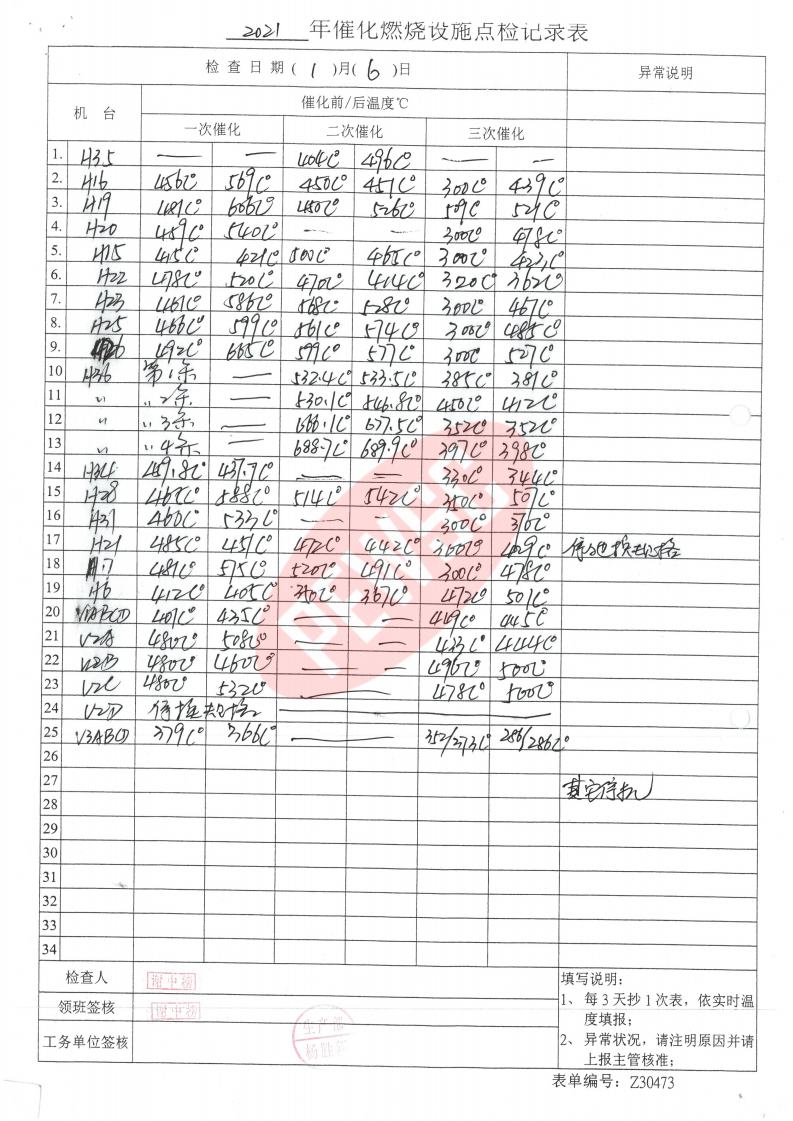 2021 年催化燃烧设施点检记录表
检查日期( 1 )月( 6 )日 异常说明
机 台 催化前/后温度℃
一次催化 二次催化 三次催化
1. H35 — — 404C° 496C° — —
2. H16 456C° 569C° 450C° 451C° 300C° 439C°
3. H19 481C° 606C° 450C° 526C° 509C° 521C°
4. H20 459C° 540C° — — 300C° 478C°
5. H15 415C° 421C° 500C° 465C° 300C° 423C°
6. H22 478C° 520C° 470C° 414C° 320C° 362C°
7. H23 461C° 586C° 568C° 528C° 300C° 467C°
8. H25 466C° 599C° 561C° 574C° 300C° 485C°
9. 492C° 665C° 599C° 577C° 300C° 527C°
10 H36 第1条 — 532.4C° 533.5C° 385C° 381C°
11 〃 〃2条 — 530.1C° 546.8C° 450C° 412C°
12 〃 〃3条 — 666.1C° 677.5C° 352C° 352C°
13 〃 〃4条 — 688.7C° 689.9C° 397C° 398C°
14 H34 459.8C° 437.7C° — — 330C° 344C°
15 H28 465C° 588C° 514C° 542C° 350C° 507C°
16 H31 460C° 533C° — 300C° 370C°
17 H21 485C° 451C° 472C° 442C° 300C° 409C°
18 481C° 575C° 520C° 491C° 300C° 478C°
19 H6 412C° 405C° 350C° 367C° 472C° 501C°
20 V1ABCD 401C° 435C° — — 419C° 445C°
21 V2A 480C° 508C° — — 423C° 444C°
22 V2B 480C° 460C° — — 496C° 500C°
23 V2C 480C° 532C° — — 478C° 500C°
24 V2D
25 V3ABCD 379C° 366C° — — 352/373C° 286/286C°
26
27 其它停机
28
29
30
31
32
33
34
PEWHC
检查人 谢中扬
领班签核 谢中扬
工务单位签核 生产部
填写说明:
1、每3天抄1次表，依实时温
度填报;
2、异常状况，请注明原因并请
上报主管核准;
表单编号: Z30473